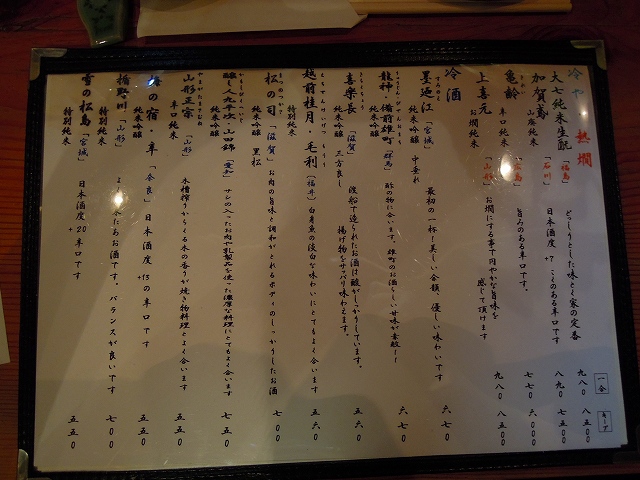 冷や 熱燗
一合
キープ
大七純米生酛「福島」 どっしりとした味とく

家の定番 九八〇 八五〇〇
加賀鳶「石川」 日本酒度 +? こくのある辛口です 八九〇 七五〇〇
亀齢
辛口純米 旨みのある辛口です。 七七〇 六〇〇〇
上喜元
お燗純米「山形」 お燗にする事で円やかな旨味を
感じて頂けます 九八〇 八五〇〇
冷酒
墨廼江「宮城」
純米吟醸 中垂れ 最初の一杯!美しい余韻、優しい味わいです 六七〇
龍神・備前雄町「群馬」
純米吟醸 酢の物に合います。雄町のお酒らしい甘味が素敵! 六七〇
喜楽長「滋賀」
純米吟醸 三方良し 渡船で造られたお酒は酸がしっかりしています。
揚げ物をサッパリ味わえます。 五六〇
越前桂月・毛利「福井」
特別純米 白身魚の淡白な味わいにとてもよく合います 五六〇
松の司「滋賀」
純米吟醸 黒松 お肉の旨味と調和がとれるボディのしっかりしたお酒 七〇〇
醸し人九平次・山田錦「愛知」
純米吟醸 サシの入ったお肉や乳製品を使った濃厚な料理にとてもよく合います 七五〇
やまがたまさむね
山形正宗「山形」
辛口純米 木槽搾りからくる木の香りが焼き物料理とよく合います 五五〇
梅の宿・辛「奈良」
純米吟醸 日本酒度 +13の辛口です 五五〇
楯野川「山形」
純米吟醸 合うお酒です。バランスが良いです 七〇〇
雪の松島「宮城」
特別純米 日本酒度 +20 辛口です 五五〇